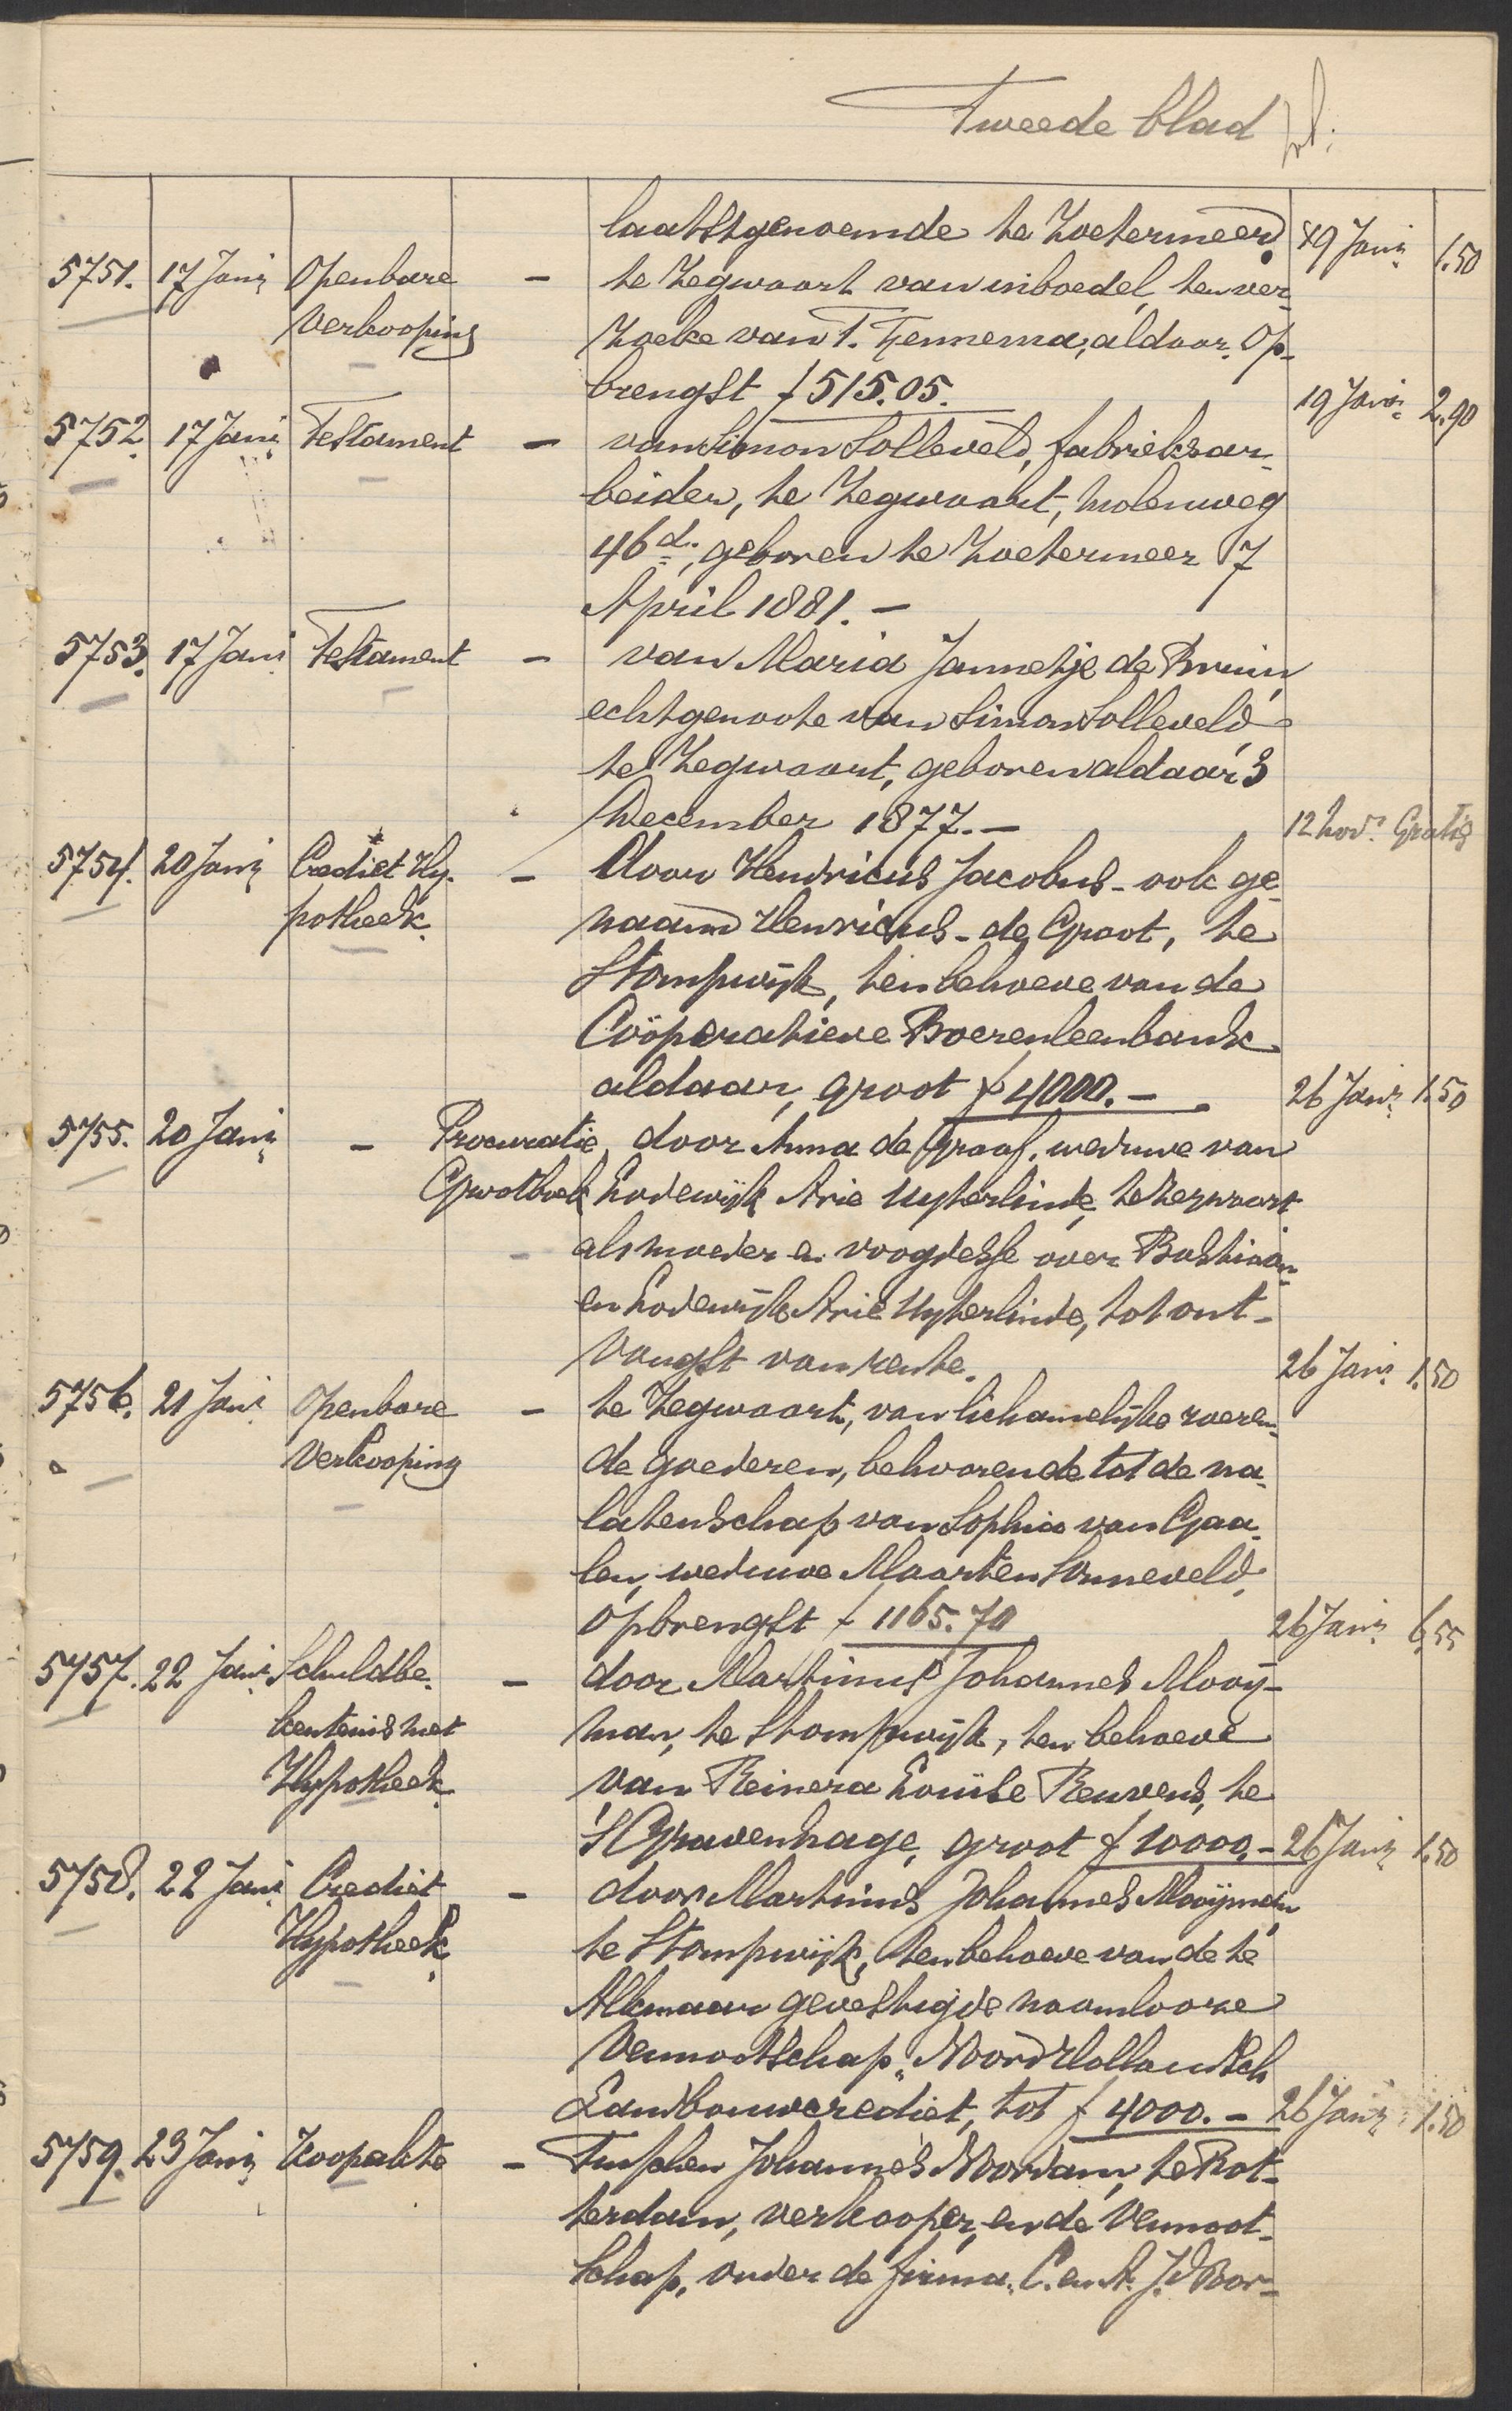 Tweede blad
laatstgenoemde te Zoetermeer. 19 Jan: 1.50
5751. 17 Jan: Openbare - te Zegwaart van inboedel, ten ver-
Verkooping zoeke van T. Hennema, aldaar. Op-
brengst f 515.05. 19 Jan: 2.90
5752. 17 Jan: Testament - van Simon Solleveld, fabrieksar-
beider, te Zegwaart, Molenweg
46d., geboren te Zoetermeer 7
April 1881. -
5753. 17 Jan: Testament - van Maria Jannetje de Bruin,
echtgenoote van Simon Solleveld
te Zegwaart, geboren aldaar 3
December 1877. - 12 Nov: Gratis
5754. 20 Jan: Crediet Hy- - Door Hendricus Jacobus - ook ge-
potheek. naamd Henricus - de Groot, te
Stompwijk, ten behoeve van de
Coöperatieve Boerenleenbank
aldaar, groot f 4000. - 26 Jan: 1.50
5755. 20 Jan: - Procuratie door Anna de Graaf, weduwe van
Grootboek Lodewijk Arie Uyterlinde, te Zegwaart
- als moeder en voogdesse over Bastiaan
en Lodewijk Arie Uyterlinde, tot ont-
vangst van rente. 26 Jan: 1.50
5756. 21 Jan: Openbare - te Zegwaart, van lichamelijke roeren-
Verkooping de goederen, behoorende tot de na-
latenschap van Sophia van Gaa-
len, weduwe Maarten Sonneveld,
Opbrengst f 1165.70 26 Jan: 6.55
5757. 22 Jan: Schuldbe- - door Martinus Johannes Mooij-
kentenis met man, te Stompwijk, ten behoeve
Hypotheek. van Reinera Louise Reuvens, te
's Gravenhage, groot f 10000. - 26 Jan: 1.50
5758. 22 Jan: Crediet - door Martinus Johannes Mooijman,
Hypotheek. te Stompwijk, ten behoeve van de te
Alkmaar gevestigde naamlooze
Vennootschap "Noord Hollandsch
Landbouwcrediet, tot f 4000. - 26 Jan: 1.50
5759. 23 Jan: Koopakte - Tusschen Johannes Noordam, te Rot-
terdam, verkooper, en de Vennoot-
schap, onder de firma. C. en A. J. v Boor-